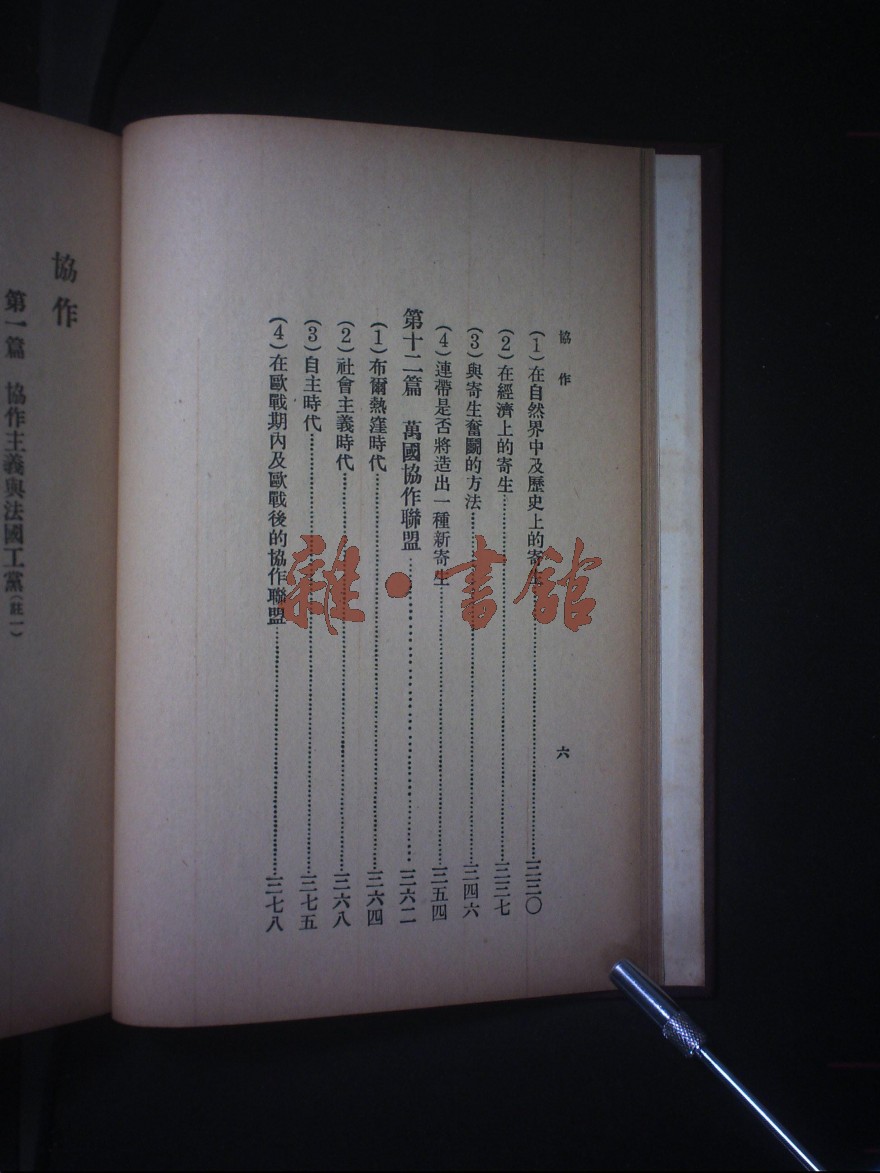 協作
六
(1)在自然界中及歷史上的寄生…………三三〇
(2)在經濟上的寄生…………三三七
(3)與寄生奮鬭的方法…………三四六
(4)連帶是否將造出一種新寄生…………三五四
第十二篇 萬國協作聯盟…………三六二
(1)布爾熱窪時代…………三六四
(2)社會主義時代…………三六八
(3)自主時代…………三七五
(4)在歐戰期內及歐戰後的協作聯盟…………三七八
協作
第一篇 協作主義與法國工黨(註一)
雜·書館